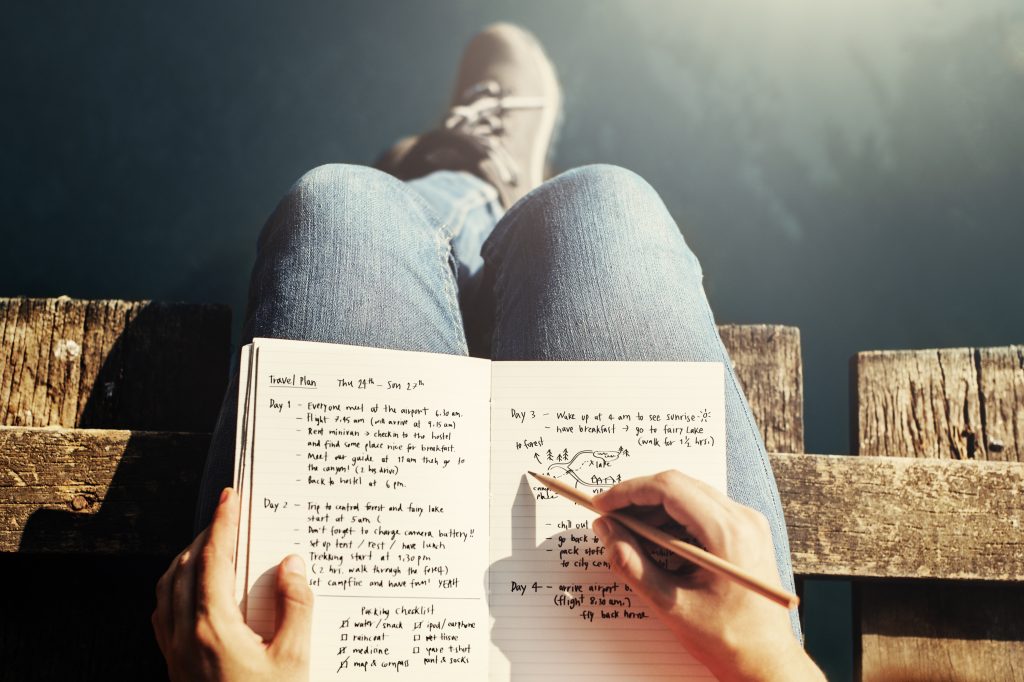 Travel Plan Thu 24th - Sun 27th
Day 1 - Everyone meet at the airport 6.30 am.
- Flight 7.45 am (will arrive at 9.15 am)
- Rent minivan → checkin to the hostel
and find some place nice for breakfast.
- Meet our guide at 11 am then go to
the canyon! (2 hrs drive)
- Back to hostel at 6 pm.
Day 2 - Trip to central forest and fairy lake
start at 5 am
- Don't forget to charge camera battery!!
- Set up tent / rest / have lunch
- Trekking start at 1.30 pm
(2 hrs. walk through the forest)
set campfire and have fun! YEAH
Packing Checklist
water / snack
ipod/earphone
raincoat
wet tissue
medicine
map & compass
pant & socks
Day 3 - Wake up at 4 am to see sunrise
- have breakfast → go to fairy Lake
(walk for 1½ hrs.)
to forest
x Lake
- chill out
- go back to
- pack stuff
to city
Day 4 - arrive airport
(flight 8.30 am)
fly back home